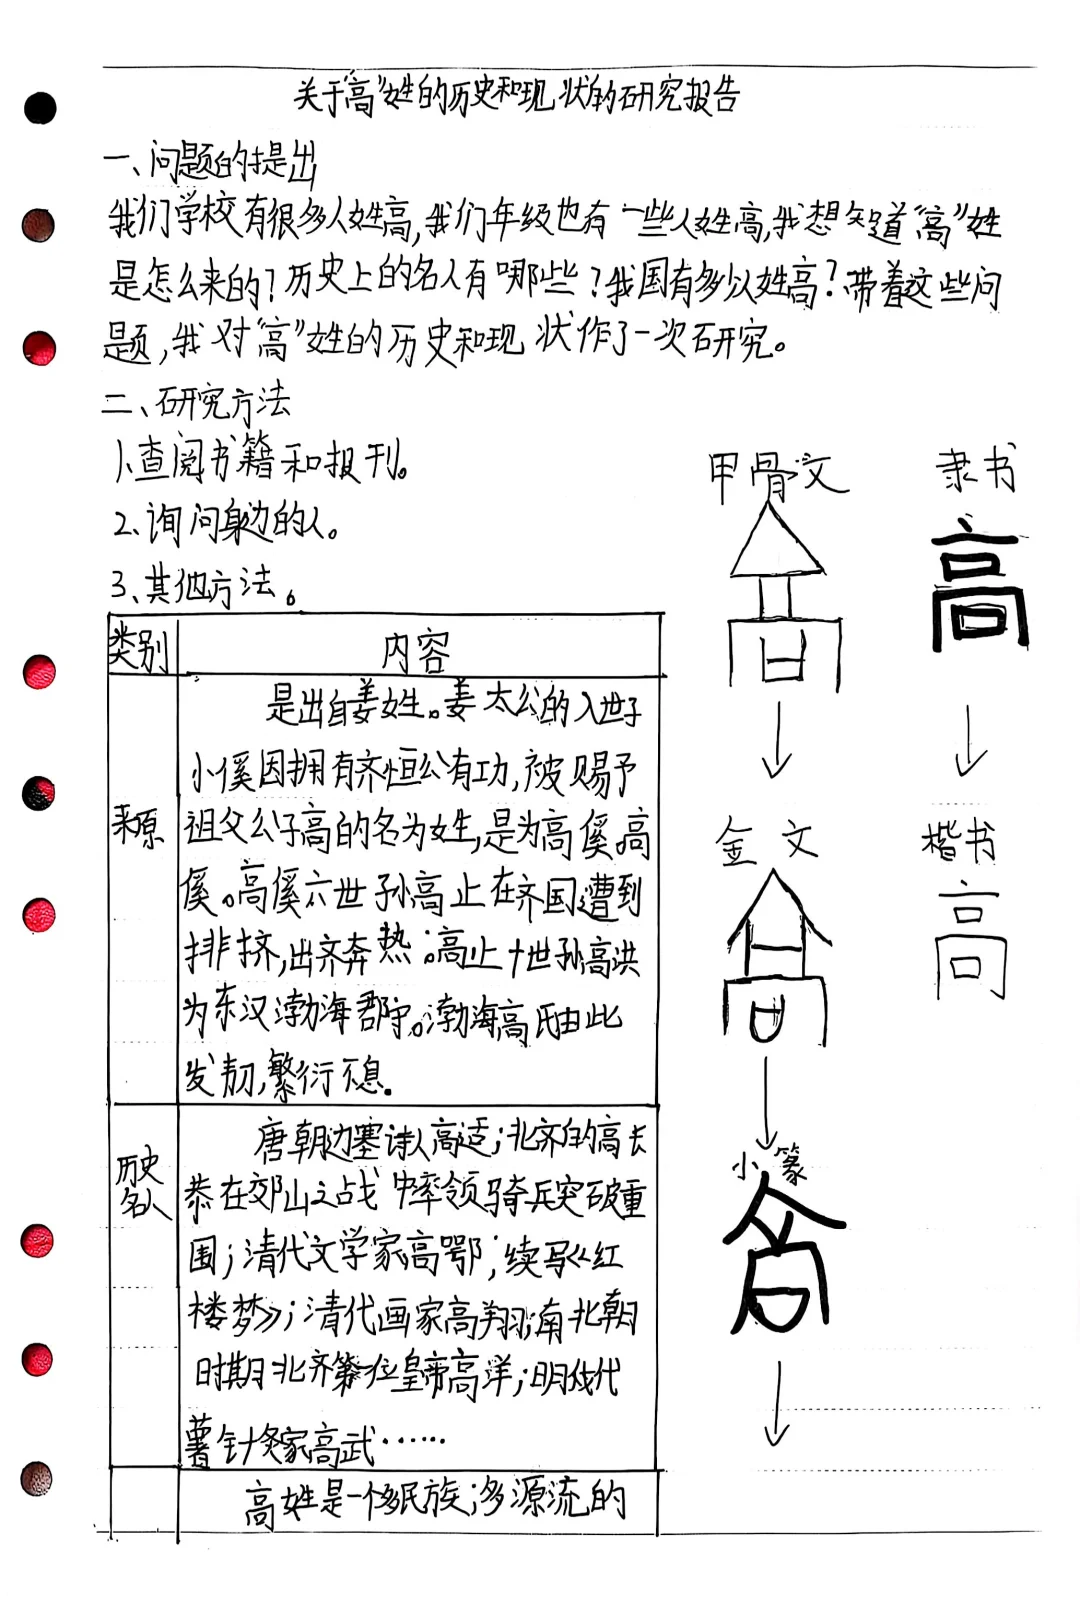 关于“高”姓的历史和现状的研究报告
一、问题的提出
我们学校有很多人姓高,我们年级也有一些人姓高,我想知道“高”姓
是怎么来的?历史上的名人有哪些?我国有多少人姓高?带着这些问
题,我对“高”姓的历史和现状作了一次研究。
二、研究方法
1、查阅书籍和报刊。
2、询问身边的人。
3、其他方法。
类别
内容
来源
是出自姜姓。姜太公的入世子
小傒因拥有齐恒公有功,被赐予
祖父公子高的名为姓,是为高傒。高
傒。高傒六世孙高止在齐国遭到
排挤,出齐奔热;高止十世孙高洪
为东汉渤海郡守。渤海高氏由此
发韧,繁衍不息.
历史
名人
唐朝边塞诗人高适;北齐的高长
恭在邙山之战中率领骑兵突破重
围;清代文学家高鄂,续写《红
楼梦》;清代画家高翔;南北朝
时期北齐第一位皇帝高洋;明代
著针灸家高武……
高姓是一个多民族;多源流的
甲骨文
金文
小篆
隶书
高
楷书
高